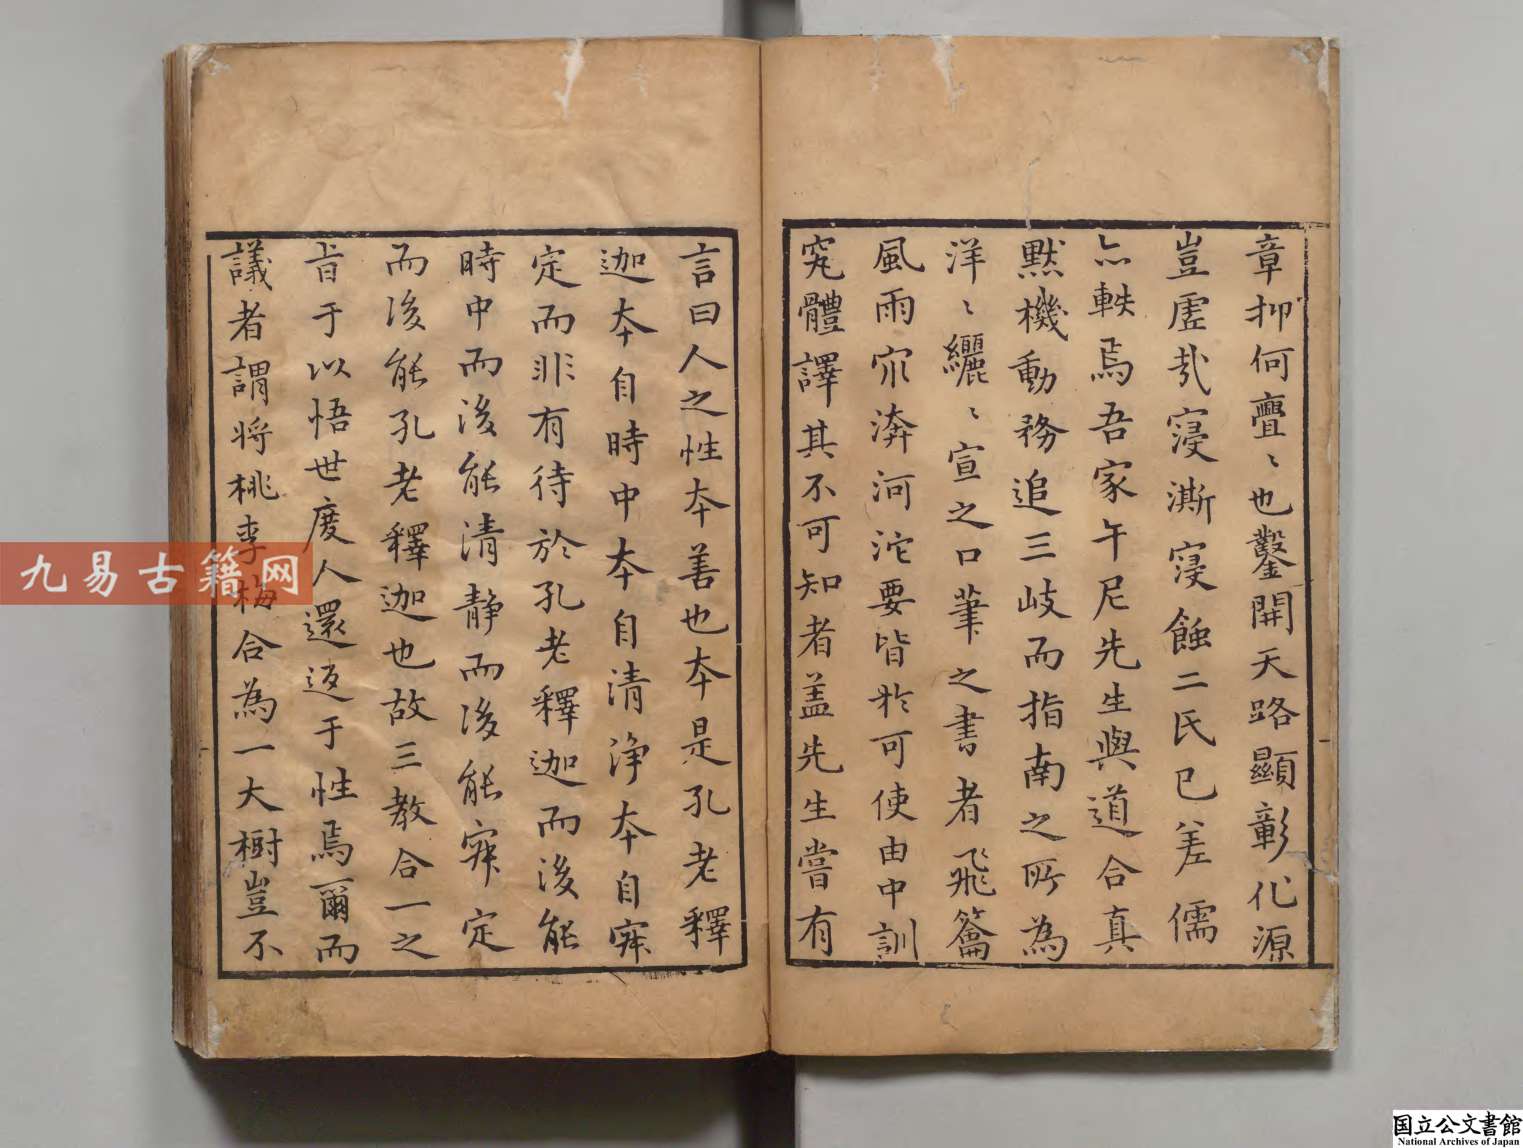 章抑何亹〻也鑿開天路顯彰化源
豈虛哉寖澌寖蝕二氏已差儒
亦軼焉吾家午尼先生與道合真
黙機動務追三岐而指南之所為
洋〻纚〻宣之口筆之書者飛籥
風雨泬漭河沱要皆於可使由中訓
究體譯其不可知者盖先生嘗有
言曰人之性本善也本是孔老釋
迦本自時中本自清浄本自㝛
定而非有待於孔老釋迦而後能
時中而後能清静而後能㝛定
而後能孔老釋迦也故三教合一之
旨于以悟世度人還返于性焉爾而
議者謂将桃李梅合為一大樹豈不
九易古籍网
国立公文書館
National Archives of Japan